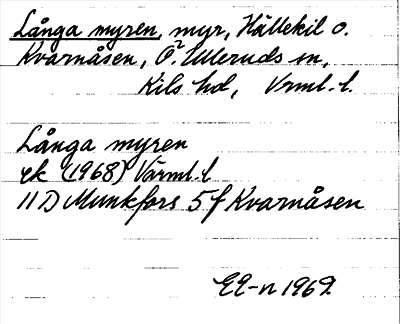 Långa myren, myr, Hällekil o.
Kvarnåsen, Ö. Ulleruds sn,
Kils hd, Vrml. l.
Långa myren
ek (1968) Värml. l
11 D Munkfors 5 f Kvarnåsen
EE-n 1969.